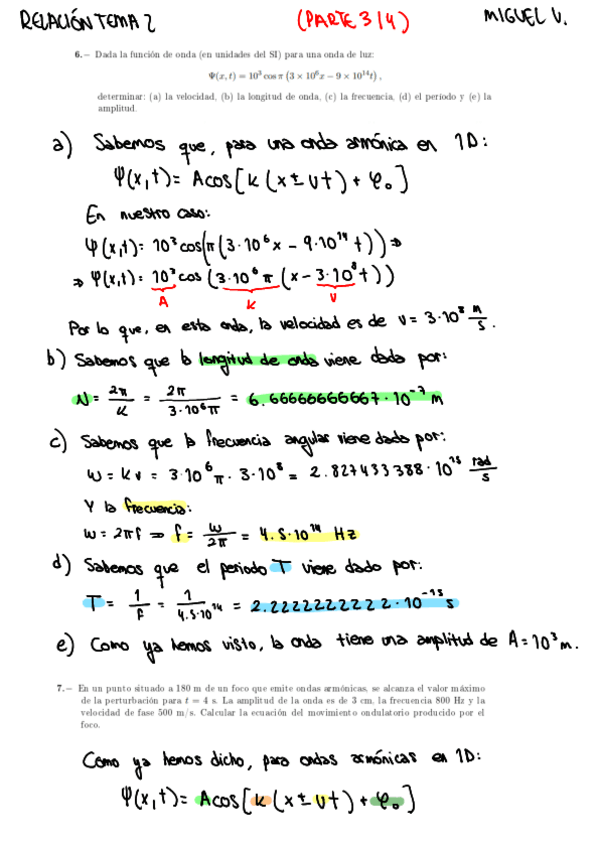 RELACIÓN TEMA 2 (PARTE 3/4) MIGUEL V.
6.– Dada la función de onda (en unidades del SI) para una onda de luz:
Ψ(x, t) = 10³ cos π (3 × 10⁶x − 9 × 10¹⁴t) ,
determinar: (a) la velocidad, (b) la longitud de onda, (c) la frecuencia, (d) el periodo y (e) la
amplitud.
a) Sabemos que, para una onda armónica en 1D:
Ψ(x,t)= Acos[k(x±vt)+φ₀]
En nuestro caso:
Ψ(x,t)= 10³cos(π(3·10⁶x − 9·10¹⁴t)) ⇒
⇒ Ψ(x,t)= 10³cos(3·10⁶π(x−3·10⁸t))
A k v
Por lo que, en esta onda, la velocidad es de v= 3·10⁸ m/s.
b) Sabemos que la longitud de onda viene dada por:
λ= 2π/k = 2π/3·10⁶π = 6.66666666667·10⁻⁷ m
c) Sabemos que la frecuencia angular viene dada por:
ω= kv= 3·10⁶π·3·10⁸= 2.827433388·10¹⁵ rad/s
Y la frecuencia:
ω=2πf ⇒ f= ω/2π = 4.5·10¹⁴ Hz
d) Sabemos que el periodo T viene dado por:
T= 1/f = 1/4.5·10¹⁴ = 2.2222222222·10⁻¹⁵ s
e) Como ya hemos visto, la onda tiene una amplitud de A=10³m.
7.– En un punto situado a 180 m de un foco que emite ondas armónicas, se alcanza el valor máximo
de la perturbación para t = 4 s. La amplitud de la onda es de 3 cm, la frecuencia 800 Hz y la
velocidad de fase 500 m/s. Calcular la ecuación del movimiento ondulatorio producido por el
foco.
Como ya hemos dicho, para ondas armónicas en 1D:
Ψ(x,t)= Acos[k(x±vt)+φ₀]